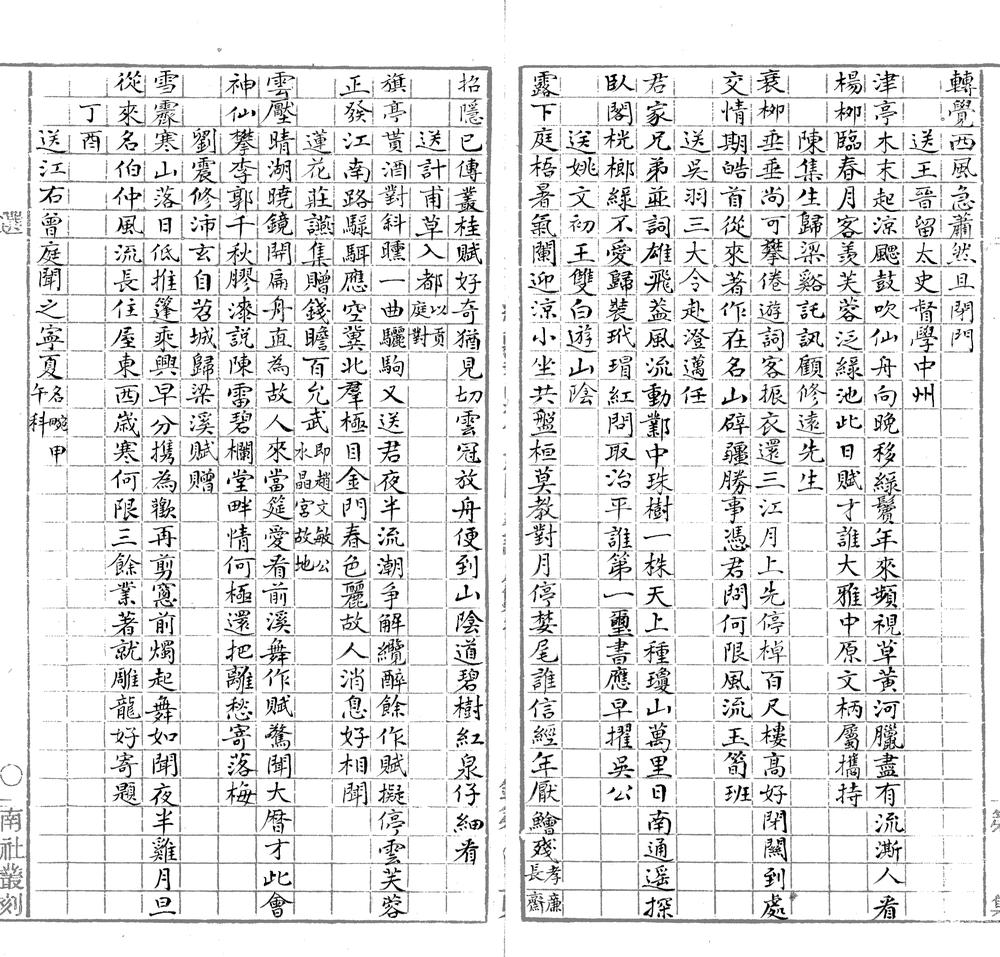 轉覺西風急蕭然且閉門
送王晉留太史督學中州
津亭木末起涼颸鼓吹仙舟向晚移綠鬢年來頻視草黃河臘盡有流澌人看
楊柳臨春月客羨芙蓉泛綠池此日賦才誰大雅中原文柄屬攜持
陳集生歸梁谿託訊顧修遠先生
衰柳垂垂尚可攀倦遊詞客振衣還三江月上先停棹百尺樓高好閉關到處
交情期皓首從來著作在名山辟疆勝事憑君問何限風流玉筍班
送吳羽三大令赴澄邁任
君家兄弟並詞雄飛蓋風流動鄴中珠樹一株天上種瓊山萬里日南通遥探
臥閣桄榔綠不愛歸裝玳瑁紅問取治平誰第一璽書應早擢吳公
送姚文初王雙白遊山陰
露下庭梧暑氣闌迎涼小坐共盤桓莫教對月停婪尾誰信經年厭鱠殘孝廉長齋
招隱已傳叢桂賦好奇猶見切雲冠放舟便到山陰道碧樹紅泉仔細看
送計甫草入都以貢庭對
旗亭貰酒對斜曛一曲驪駒又送君夜半流潮爭解纜醉餘作賦擬停雲芙蓉
正發江南路騄駬應空冀北羣極目金門春色麗故人消息好相聞
蓮花莊讌集贈錢瞻百允武即趙文敏公水晶宮故地
雲壓晴湖曉鏡開扁舟直為故人來當筵愛看前溪舞作賦驚聞大曆才此會
神仙攀李郭千秋膠漆說陳雷碧欄堂畔情何極還把離愁寄落梅
劉震修沛玄自苕城歸梁溪賦贈
雪霽寒山落日低推篷乘興早分攜為歡再剪窻前燭起舞如聞夜半雞月旦
從來名伯仲風流長住屋東西歲寒何限三餘業著就雕龍好寄題
丁酉
送江右曾庭聞之寧夏名畹甲午科
選
南社叢刻